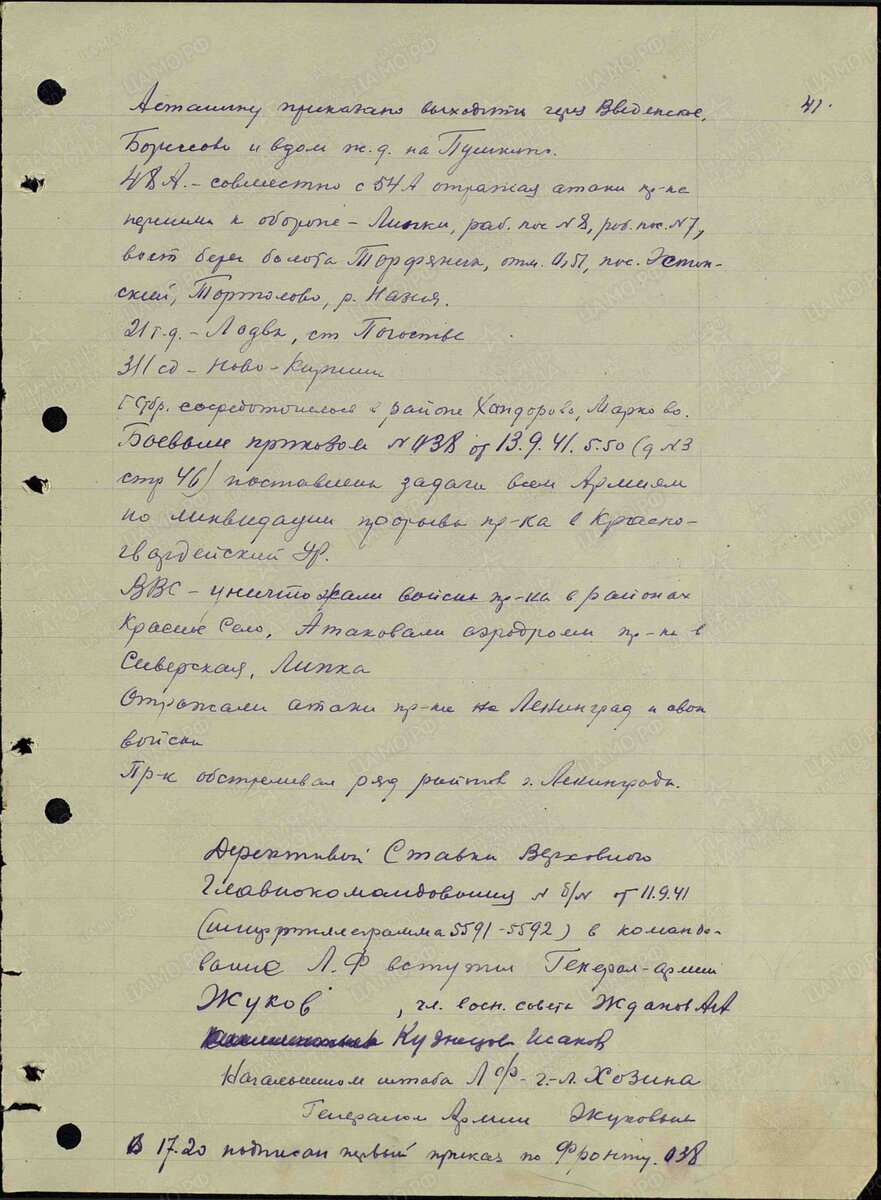 41.
Асташину приказано выходить через Введенское,
Борисово и вдоль ж.д. на Пушкин.
48А. – совместно с 54А отражая атаки пр-ка
перешли к обороне – Липки, раб. пос №8, раб. пос. №7,
вост берег болота Торфяник, отм. 0,51, пос. Эстон-
ский, Тортолово, р. Назия.
21т.д. – Лодва, ст Погостье
311 сд – Ново-Кириши
сосредоточилась в районе Хандорово, Марково.
Боевым приказом №038 от 13.9.41. 5.50 (д №3
стр 46) поставлены задачи всем Армиям
по ликвидации прорыва пр-ка в Красно-
гвардейский Ур.
ВВС – уничтожали войска пр-ка в районах
Красное Село, Атаковали аэродромы пр-ка в
Сиверская, Липка
Отражали атаки пр-ка на Ленинград и свои
войска
Пр-к обстреливал ряд районов г. Ленинграда.
Дерективой Ставки Верховного
Главнокомандования № б/№ от 11.9.41
(шифртелеграмма 5591-5592) в командо-
вание Л.Ф вступил Генерал-армии
Жуков , чл. воен. совета Жданов АА
Кузнецов Исаков
Начальником штаба ЛФ – г-л. Хозина
Генералом Армии Жуковым
В 17.20 подписан первый приказ по Фронту. 038